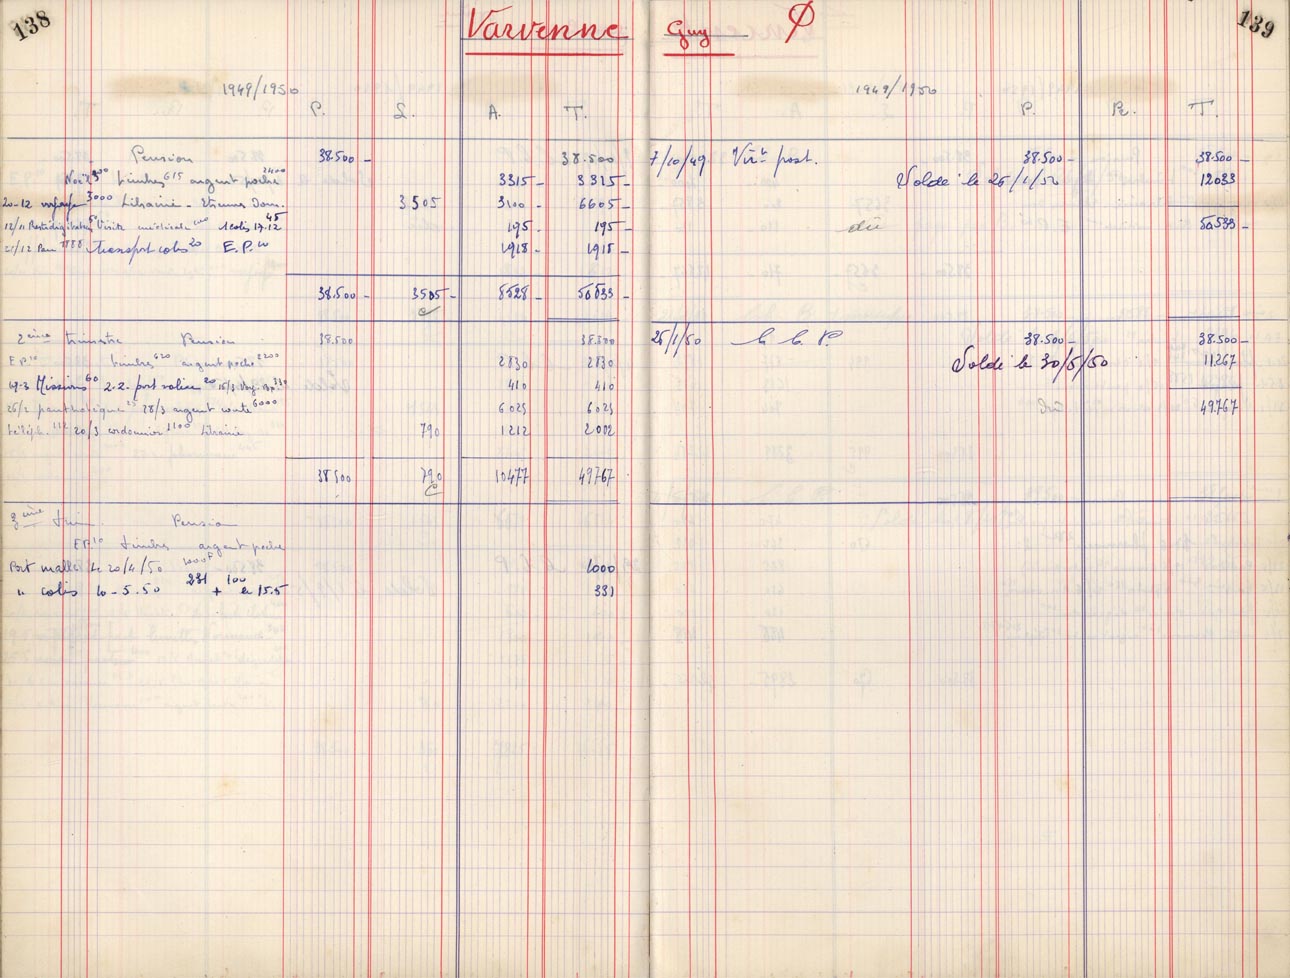 138
Varvenne Guy
139
1949/1950
P. L. A. T.
Pension 38.500 - 38.500
timbres 615 argent poche 2400 3315 - 3315 -
20-12 voyage 3000 Librairie - 3505 3100 - 6605 -
Visite médicale 195 - 195 -
Transport colis 20 E.P. 10 1918 - 1918 -
38.500 - 3505 - 8528 - 50533 -
2ème trimestre Pension 38.500 38.500
E P. 10 timbres 620 argent poche 2200 2830 2830
Missions 60 2.2. port valise 20 410 410
28/3 argent compte 6000 6025 6025
20/3 cordonnier 1100 Librairie 790 1212 2002
38500 790 10477 49767
3ème trim. Pension
EP. 10 timbres argent poche
Port malle le 20/4/50 1000F 1000
" colis 10-5.50 231 + 100 le 15.5 331
1949/1950
P. R. T.
7/10/49 Virt post. 38.500 - 38.500 -
Soldé le 26/1/50 12033
dû 50533 -
26/1/50 C. C. P. 38.500 - 38.500 -
Soldé le 30/5/50 11267
Dû 49767